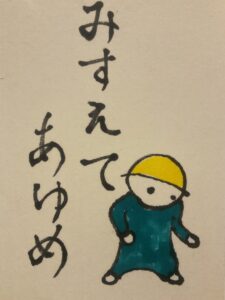 みすえて
あゆめ